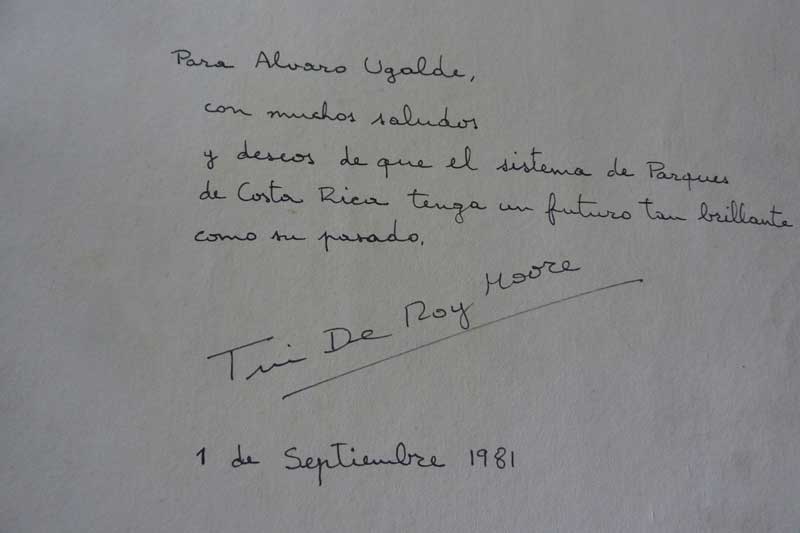 Para Alvaro Ugalde,
con muchos saludos
y deseos de que el sistema de Parques
de Costa Rica tenga un futuro tan brillante
como su pasado.
Tui De Roy Moore
1 de Septiembre 1981